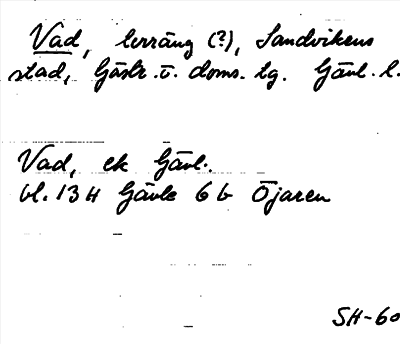 Vad, terräng (?), Sandvikens
stad, Gästr. ö. doms. tg. Gävl. l.
Vad, ek Gävl.
bl. 13 H Gävle 6 b Öjaren
SH-60